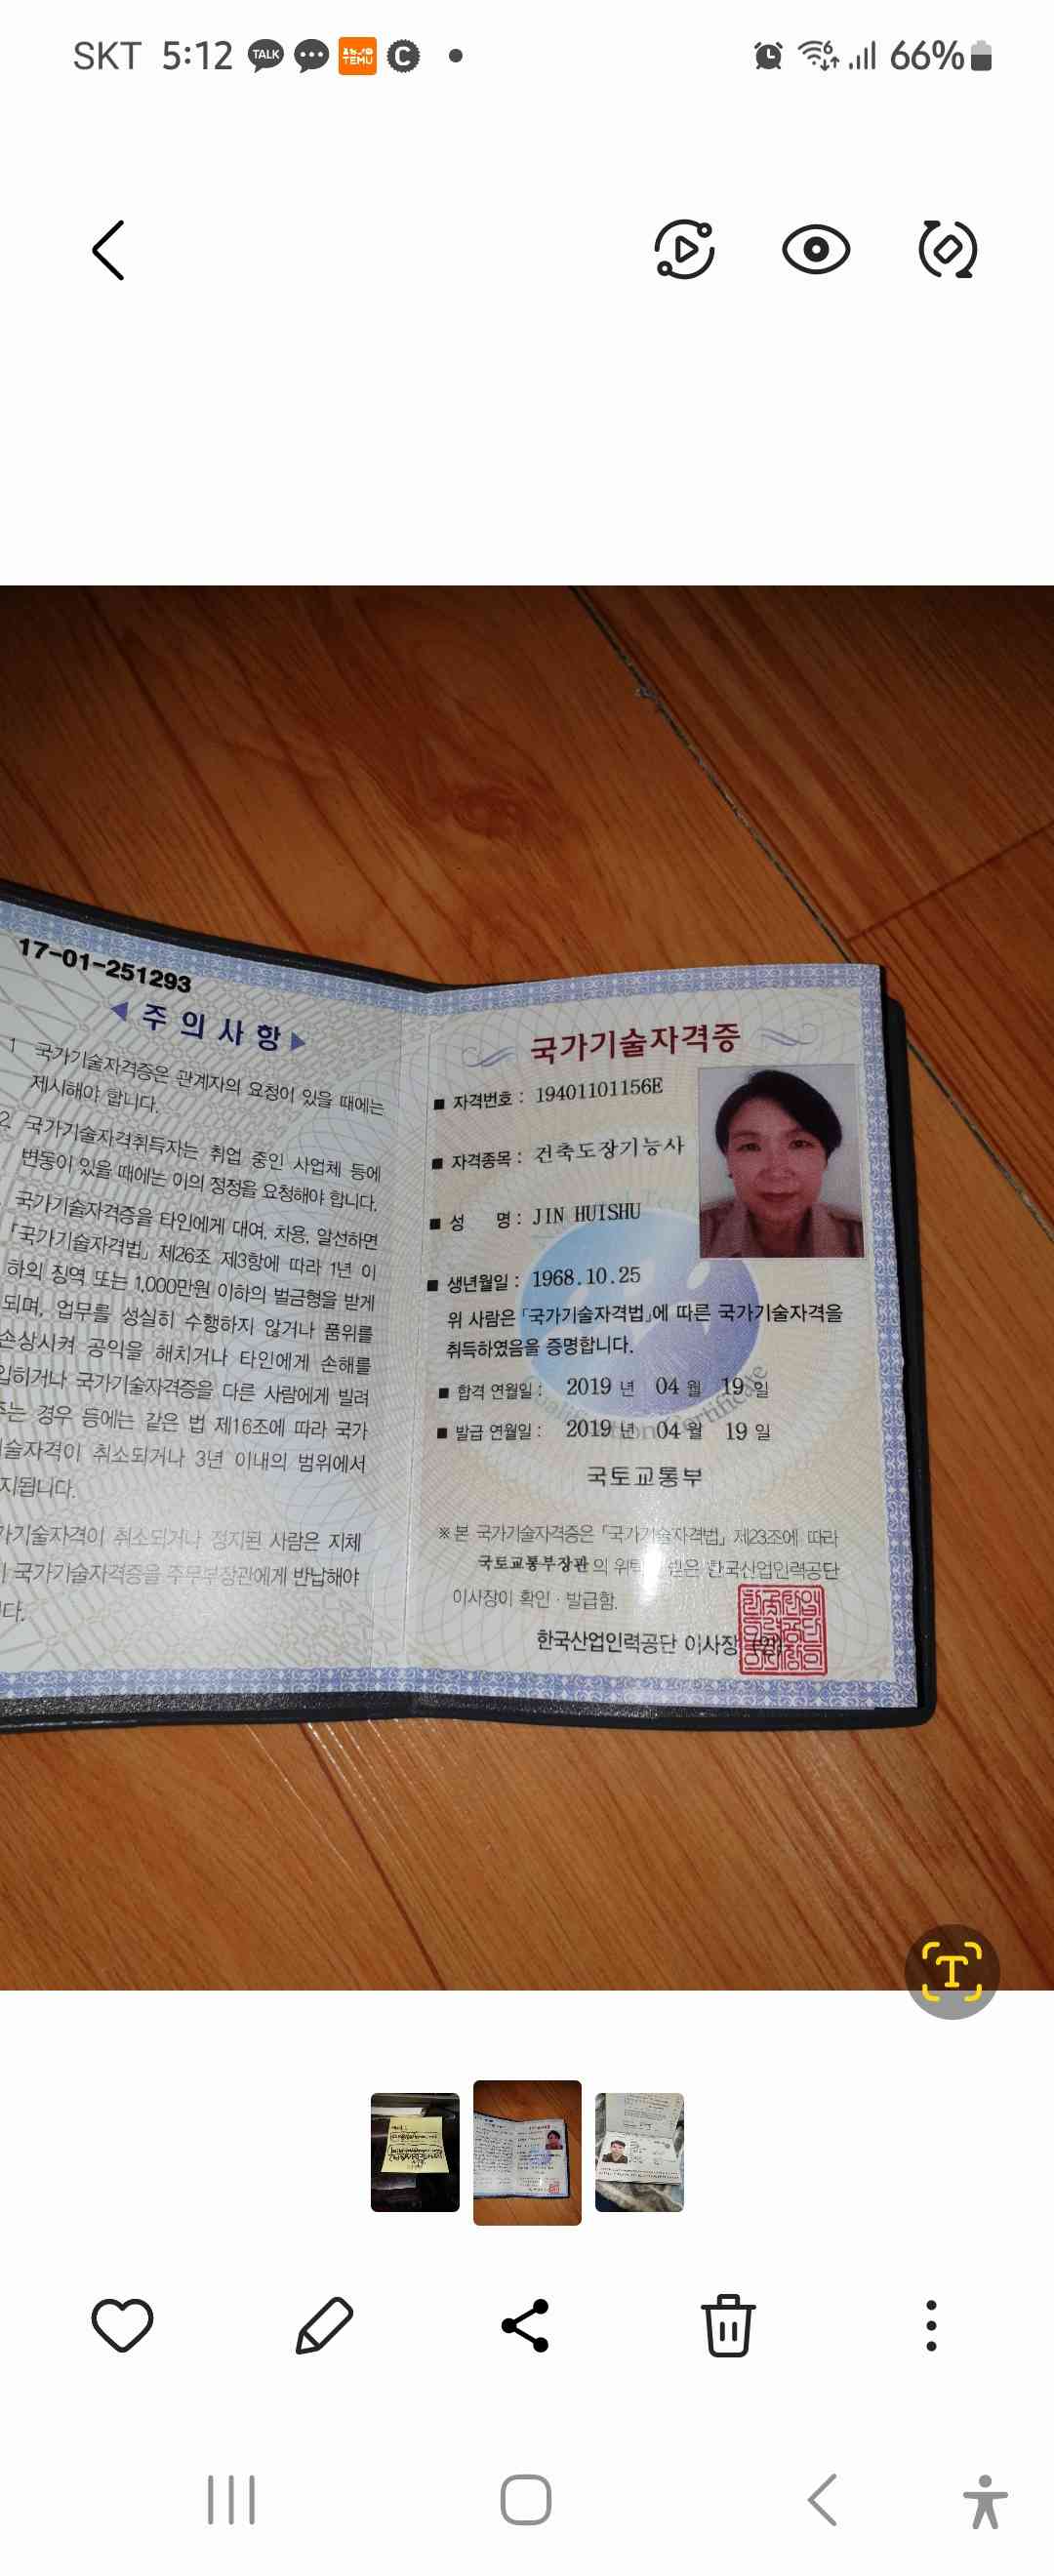 SKT 5:12 TALK TEMU C 66%
17-01-251293
주 의 사 항
1. 국가기술자격증은 관계자의 요청이 있을 때에는
제시해야 합니다.
2. 국가기술자격취득자는 취업 중인 사업체 등에
변동이 있을 때에는 이의 정정을 요청해야 합니다.
국가기술자격증을 타인에게 대여, 차용, 알선하면
「국가기술자격법」 제26조 제3항에 따라 1년 이
하의 징역 또는 1,000만원 이하의 벌금형을 받게
되며, 업무를 성실히 수행하지 않거나 품위를
손상시켜 공익을 해치거나 타인에게 손해를
입히거나 국가기술자격증을 다른 사람에게 빌려
주는 경우 등에는 같은 법 제16조에 따라 국가
기술자격이 취소되거나 3년 이내의 범위에서
지됩니다.
가기술자격이 취소되거나 정지된 사람은 지체
이 국가기술자격증을 주무부장관에게 반납해야
다.
국가기술자격증
■ 자격번호 : 19401101156E
■ 자격종목 : 건축도장기능사
■ 성 명 : JIN HUISHU
■ 생년월일 : 1968.10.25
위 사람은 「국가기술자격법」에 따른 국가기술자격을
취득하였음을 증명합니다.
■ 합격 연월일 : 2019 년 04 월 19 일
■ 발급 연월일 : 2019 년 04 월 19 일
국토교통부
※ 본 국가기술자격증은 「국가기술자격법」 제23조에 따라
국토교통부장관의 위탁 받은 한국산업인력공단
이사장이 확인 · 발급함.
한국산업인력공단 이사장 (인)
T